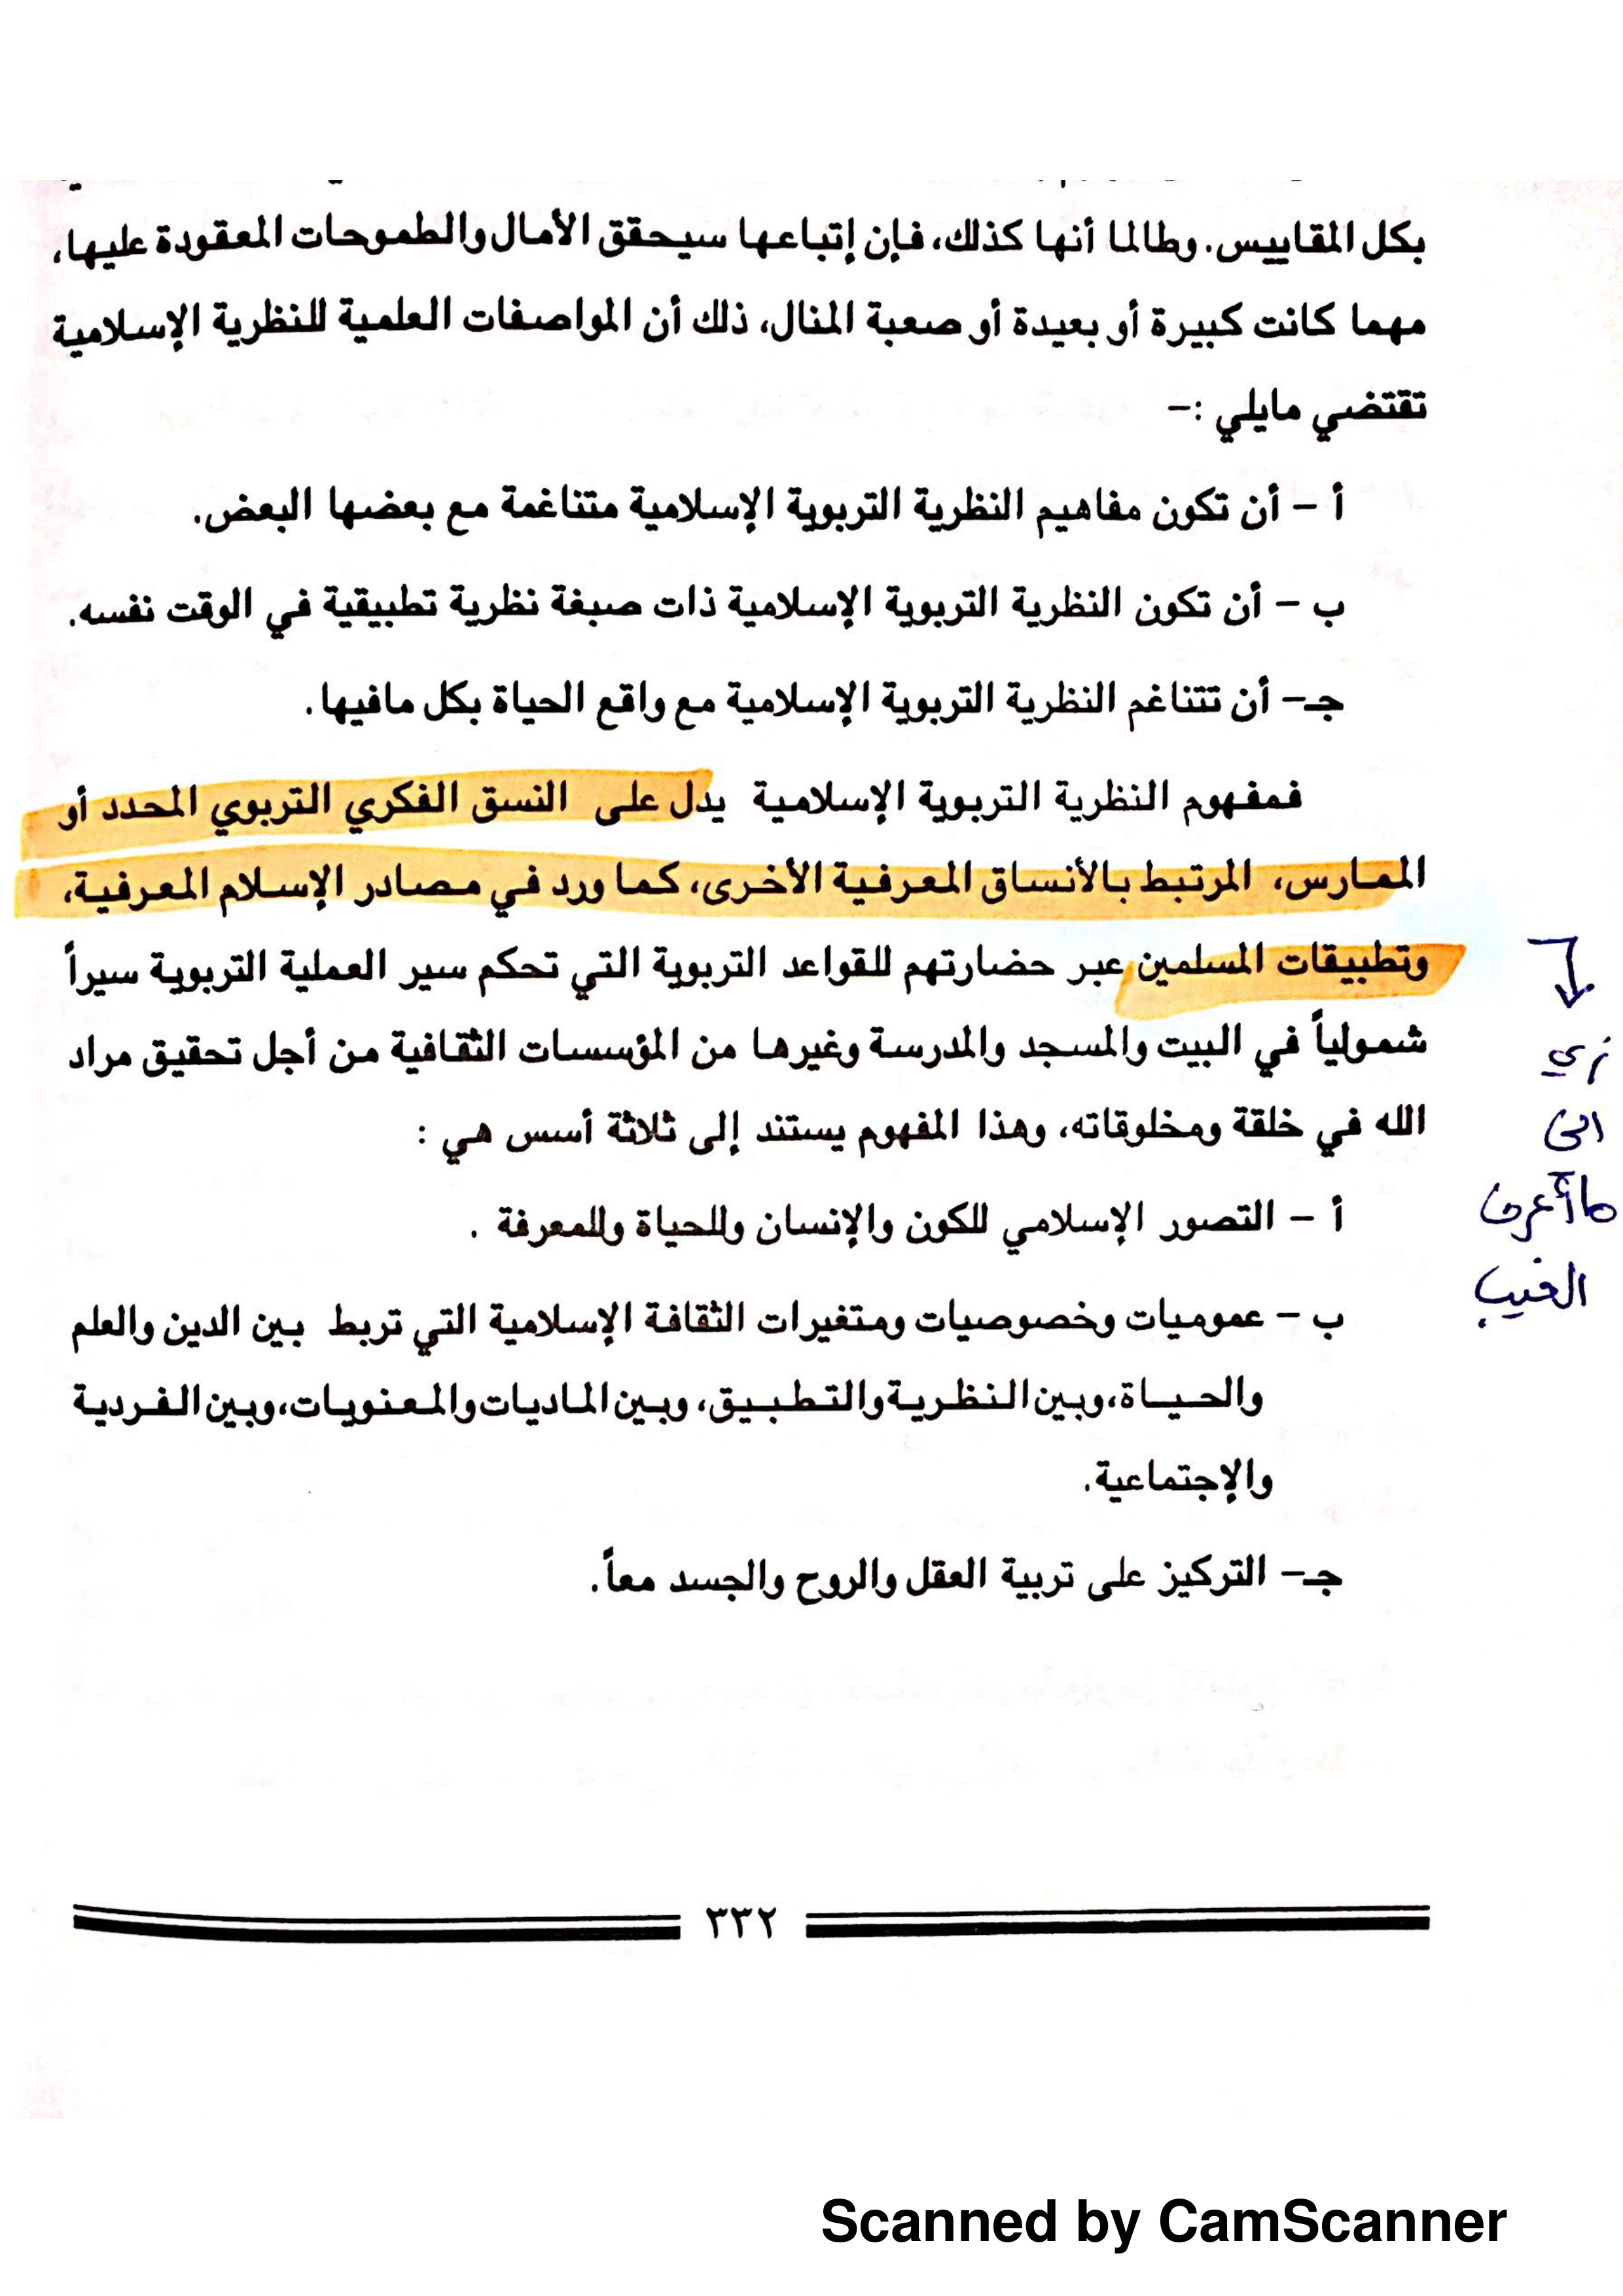 بكل المقاييس. وطالما أنها كذلك، فإن إتباعها سيحقق الأمال والطموحات المعقودة عليها،
مهما كانت كبيرة أو بعيدة أو صعبة المنال، ذلك أن المواصفات العلمية للنظرية الإسلامية
تقتضي مايلي :-
أ - أن تكون مفاهيم النظرية التربوية الإسلامية متناغمة مع بعضها البعض.
ب - أن تكون النظرية التربوية الإسلامية ذات صبغة نظرية تطبيقية في الوقت نفسه.
جـ- أن تتناغم النظرية التربوية الإسلامية مع واقع الحياة بكل مافيها.
فمفهوم النظرية التربوية الإسلامية يدل على النسق الفكري التربوي المحدد أو
الممارس، المرتبط بالأنساق المعرفية الأخرى، كما ورد في مصادر الإسلام المعرفية،
وتطبيقات المسلمين عبر حضارتهم للقواعد التربوية التي تحكم سير العملية التربوية سيراً
شمولياً في البيت والمسجد والمدرسة وغيرها من المؤسسات الثقافية من أجل تحقيق مراد
الله في خلقة ومخلوقاته، وهذا المفهوم يستند إلى ثلاثة أسس هي :
أ - التصور الإسلامي للكون والإنسان وللحياة وللمعرفة .
ب - عموميات وخصوصيات ومتغيرات الثقافة الإسلامية التي تربط بين الدين والعلم
والحياة، وبين النظرية والتطبيق، وبين الماديات والمعنويات، وبين الفردية
والإجتماعية.
جـ- التركيز على تربية العقل والروح والجسد معاً.
زي
ما أعرف
الغيب
٣٣٢
Scanned by CamScanner